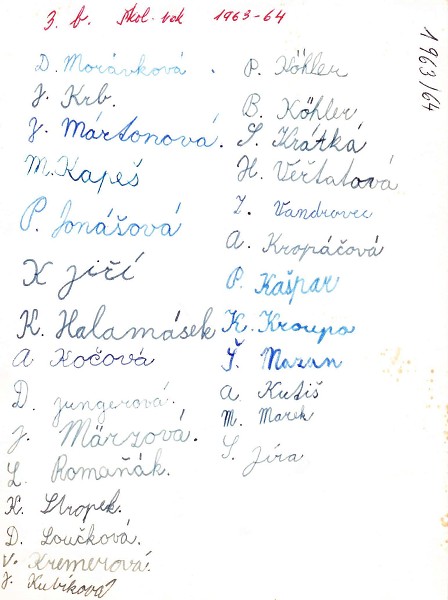 3. b. škol. rok 1963-64
1963/64
D. Morávková.
J. Krb.
J. Mártonová.
M. Kapeš
P. Jonášová
K Jiří
K. Halamásek
A Kočová
D. Jungerová.
J. Märzová.
L. Romaňák.
K. Stropek.
D. Loučková.
V. Kremerová.
J. Kubíková
P. Köhler
B. Köhler
S. Krátká
H. Veřtatová
Z. Vandrovec
A. Kropáčová
P. Kašpar
K. Kroupa
Mazan
A Kutiš
M. Marek
S. Jíra